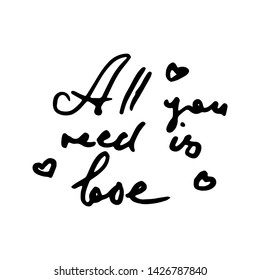 All you
need is
love
www.shutterstock.com · 1426787840